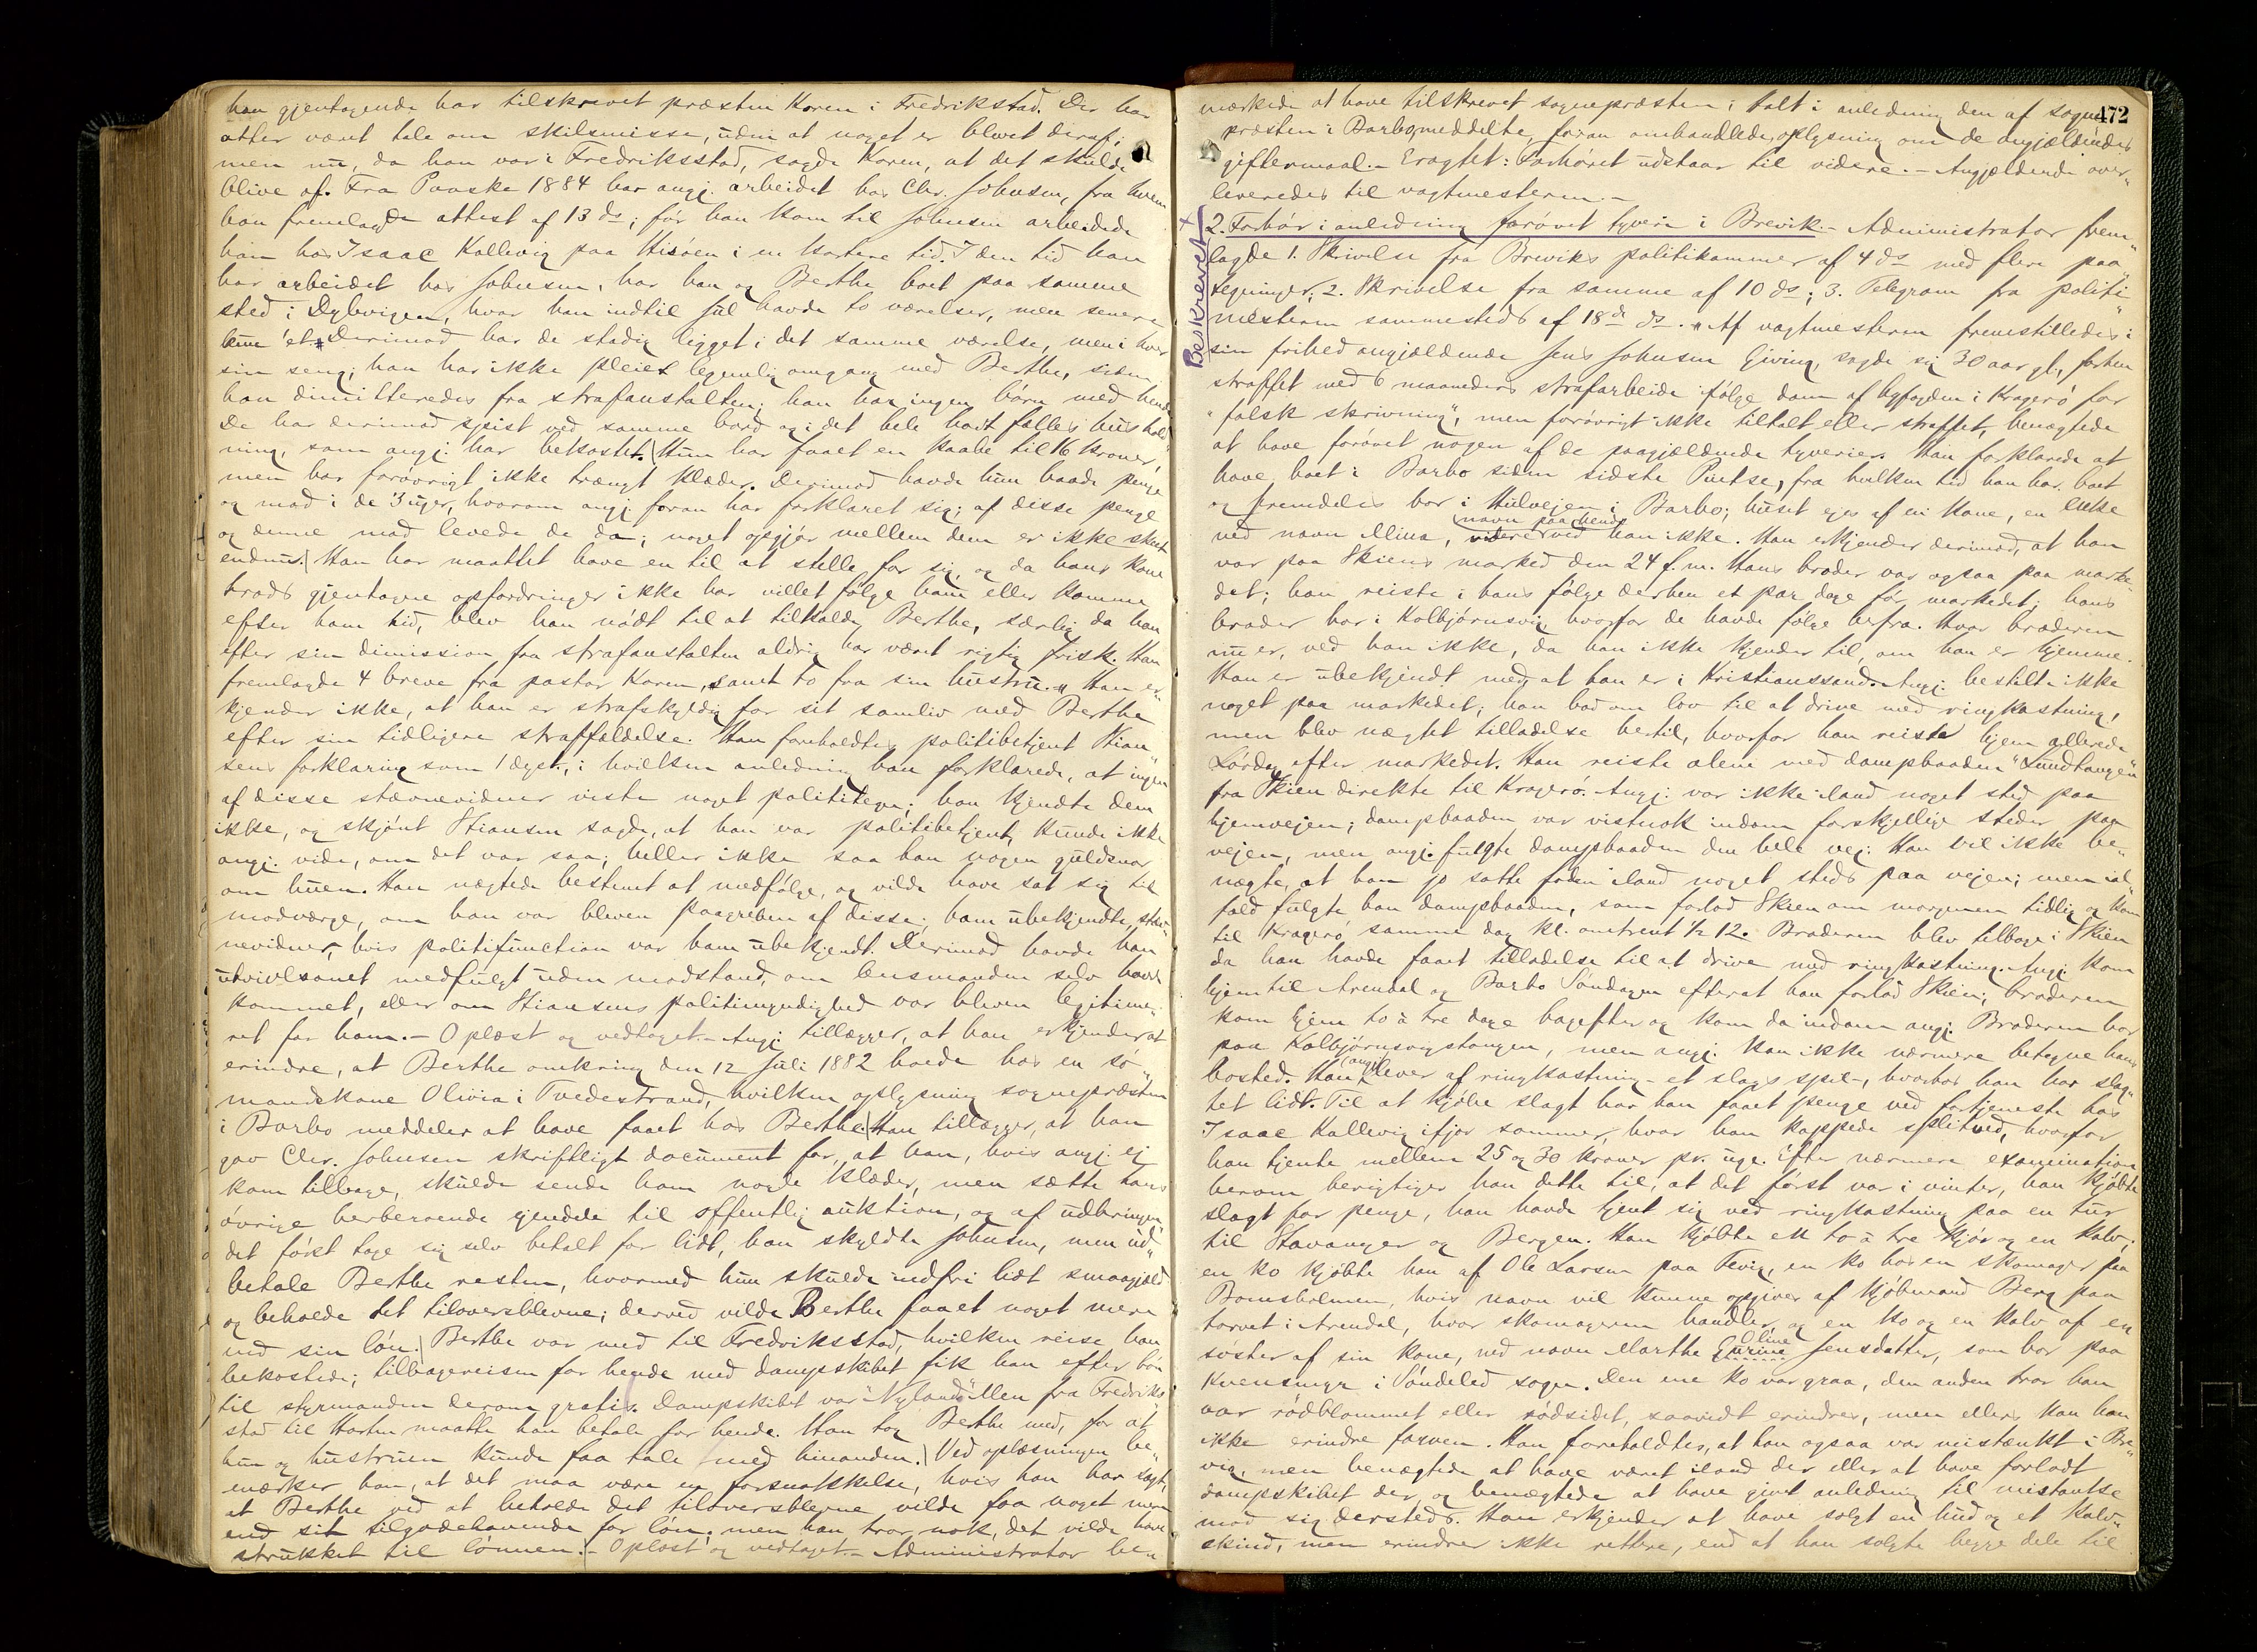 han gjentagende har tilskrevet præsten Koren i Fredrikstad. Der har
atter været tale om skilsmisse, uden at noget er blevet deraf;
men nu, da han var i Fredriksstad, sagde Koren, at det skulde
blive af. Fra Paaske 1884 har angj. arbeidet hos Chr. Johnsen, fra hvem
han fremlagde attest af 13 ds; før han kom til Johnsen arbeidede
han hos Isaac Kallevig paa Hisøen i en kortere tid. I den tid han
har arbeidet hos Johnsen, har han og Berthe boet paa samme
sted i Dybvigen, hvor han indtil Jul havde to værelser, men senere
kun et. Derimod har de stadig ligget i det samme værelse, men i hver
sin seng; han har ikke pleiet legemlig omgang med Berthe, siden
han dimitteredes fra strafanstalten; han har ingen børn med hende
De har derimod spist ved samme bord og i det hele havt fælles hushold
ning, som angj. har bekostet. Hun har faaet en kaabe til 16 kroner,
men har forøvrigt ikke trængt klæder. Derimod havde hun baade penge
og mad i de 3 uger, hvorom angj. foran har forklaret sig; af disse penge
og denne mad levede de da; noget opgjør mellem dem er ikke skeet
endnu. Han har maattet have en til at stelle for sig, og da hans kone
trods gjentagne opfordringer ikke har villet følge ham eller komme
efter ham hid, blev han nødt til at tilkalde Berthe, særlig da han
efter sin dimission fra strafanstalten aldrig har været rigtig frisk. Han
fremlagde 4 breve fra pastor Koren, samt to fra sin hustru. Han er-
kjender ikke, at han er strafskyldig for sit samliv med Berthe
efter sin tidligere straffældelse. Han foreholdtes politibetjent Stian
sens forklaring som 1 dept., i hvilken anledning han forklarede, at ingen
af disse stævnevidner viste noget polititegn; han kjendte dem
ikke, og skjønt Stiansen sagde, at han var politibetjent, kunde ikke
angj. vide, om det var saa; heller ikke saa han nogen guldsnor
om huen. Han nægtede bestemt at medfølge, og vilde have sat sig til
modværge, om han var bleven paagreben af disse, ham ubekjendte, stæv
nevidner, hvis politifunction var ham ubekjendt. Derimod havde han
utvivlsomt medfulgt uden modstand, om lensmanden selv havde
kommet, eller om Stiansens politimyndighed var bleven legitime-
ret for ham. – Oplæst og vedtaget. – Angj. tillægger, at han erkjender at
erindre, at Berthe omkring den 12 Juli 1882 boede hos en sø-
mandskone Olivia i Tvedestrand, hvilken oplysning sognepræsten
i Barbo meddeler at have faaet hos Berthe. Han tillægger, at han
gav Chr. Johnsen skriftligt document for, at han, hvis angj. ej
kom tilbage, skulde sende ham nogle klæder, men sætte hans
øvrige herberoende ejendele til offentlig auktion, og af udbringen
det først tage sig selv betalt for lidt, han skyldte Johnsen, men ud
betale Berthe resten, hvormed hun skulde indfri lidt smaagjæld
og beholde det tiloversblevne; derved vilde Berthe faaet noget mere
end sin løn. Berthe var med til Fredriksstad, hvilken reise han
bekostede; tilbagereisen for hende med dampskibet fik han efter bøn
til styrmanden derom gratis. Dampskibet var "Nyland". Men fra Fredrik
stad til Horten maatte han betale for hende. Han tog Berthe med, for at
hun og hustruen kunde faa tale med hinanden. Ved oplæsningen be
mærker han, at det maa være en forsnakkelse, hvis han har sagt,
at Berthe ved at beholde det tiloversblevne vilde faa noget mere
end sit tilgodehavende for løn; men han tror nok, det vilde have
strukket til lønnen. – Oplæst og vedtaget. – Administrator be-
472
mærkede at have tilskrevet sognepræsten i Holt i anledning den af sogne
præsten i Barbo meddelte, foran omhandlede, oplysning om de angjældendes
giftermaal. – Eragtet: Forhøret udstaar til videre. – Angjældende over-
leveredes til vagtmesteren. –
Beskrevet
2. Forhør i anledning forøvet tyveri i Brevik. – Administrator frem
lagde 1. Skrivelse fra Breviks politikammer af 4 ds med flere paa
tegninger; 2. Skrivelse fra samme af 10 ds; 3. Telegram fra politi
mesteren sammesteds af 18de ds. Af vagtmesteren fremstilledes i
sin frihed angjældende Jens Johnsen Giving, sagde sig 30 aar gl., forhen
straffet med 6 maaneders strafarbeide ifølge dom af byfogden i Kragerø for
"falsk skrivning", men forøvrigt ikke tiltalt eller straffet, benægtede
at have forøvet nogen af de paagjældende tyverier. Han forklarede at
have boet i Barbo siden sidste Pintse, fra hvilken tid han har boet
og fremdeles bor i Hulvejen i Barbo; huset ejes af en kone, en enke
ved navn Mina, videre navn paa hende ved han ikke. Han erkjender derimod, at han
var paa Skiens marked den 24 f. m. Hans broder var ogsaa paa marke-
det; han reiste i hans følge derhen et par dage før markedet; hans
broder bor i Kolbjørnsvig, hvorfor de havde følge herfra. Hvor broderen
nu er, ved han ikke, da han ikke kjender til, om han er hjemme.
Han er ubekjendt med, at han er i Kristianssand. Angj. bestilte ikke
noget paa markedet; han bad om lov til at drive med ringkastning,
men blev nægtet tilladelse hertil, hvorfor han reiste hjem allerede
Lørdag efter markedet. Han reiste alene med dampbaaden "Lundtangen"
fra Skien direkte til Kragerø. Angj. var ikke iland noget sted paa
hjemvejen; dampbaaden var vistnok indom forskjellige steder paa
vejen, men angj. fulgte dampbaaden den hele vej. Han vil ikke be-
nægte, at han jo satte foden iland noget steds paa vejen; men ial
fald fulgte han dampbaaden, som forlod Skien om morgenen tidlig og kom
til Kragerø samme dag kl. omtrent ½ 12. Broderen blev tilbage i Skien
da han havde faaet tilladelse til at drive med ringkastning. Angj. kom
hjem til Arendal og Barbo Søndagen efterat han forlod Skien; broderen
kom hjem to à tre dage bagefter og kom da indom angj. Broderen bor
paa Kolbjørnsvigstangen, men angj. kan ikke nærmere betegne hans
bosted. Han (angj.) lever af ringkastning – et slags spil –, hvorhos han har slag
tet lidt. Til at kjøbe slagt har han faaet penge ved fortjeneste hos
Isaac Kallevig ifjor sommer, hvor han kappede splitved, hvorfor
han tjente mellem 25 og 30 kroner pr. uge. Efter nærmere examination
herom berigtiger han dette til, at det først var i vinter, han kjøbte
slagt for penge, han havde tjent sig ved ringkastning paa en tur
til Stavanger og Bergen. Han kjøbte en to à tre kjør og en kalv;
en ko kjøbte han af Ole Larsen paa Fevig, en ko hos en skomager paa
Bomsholmen, hvis navn vil kunne opgives af kjøbmand Berg paa
torvet i Arendal, hvor skomageren handler, og en ko og en kalv af en
søster af sin kone, ved navn Marthe Jensdatter, som bor paa
i Søndeled sogn. Den ene ko var graa, den anden tror han
var rødblommet eller rødsidet, saavidt erindres, men ellers kan han
ikke erindre farven. Han foreholdtes, at han ogsaa var mistænkt i Bre
vig, men benægtede at have været iland der eller at have forladt
dampskibet der, og benægtede at have givet anledning til mistanke
mod sig dersteds. Han erkjender at have solgt en hud og et kalv-
skind, men erindrer ikke rettere, end at han solgte begge dele til